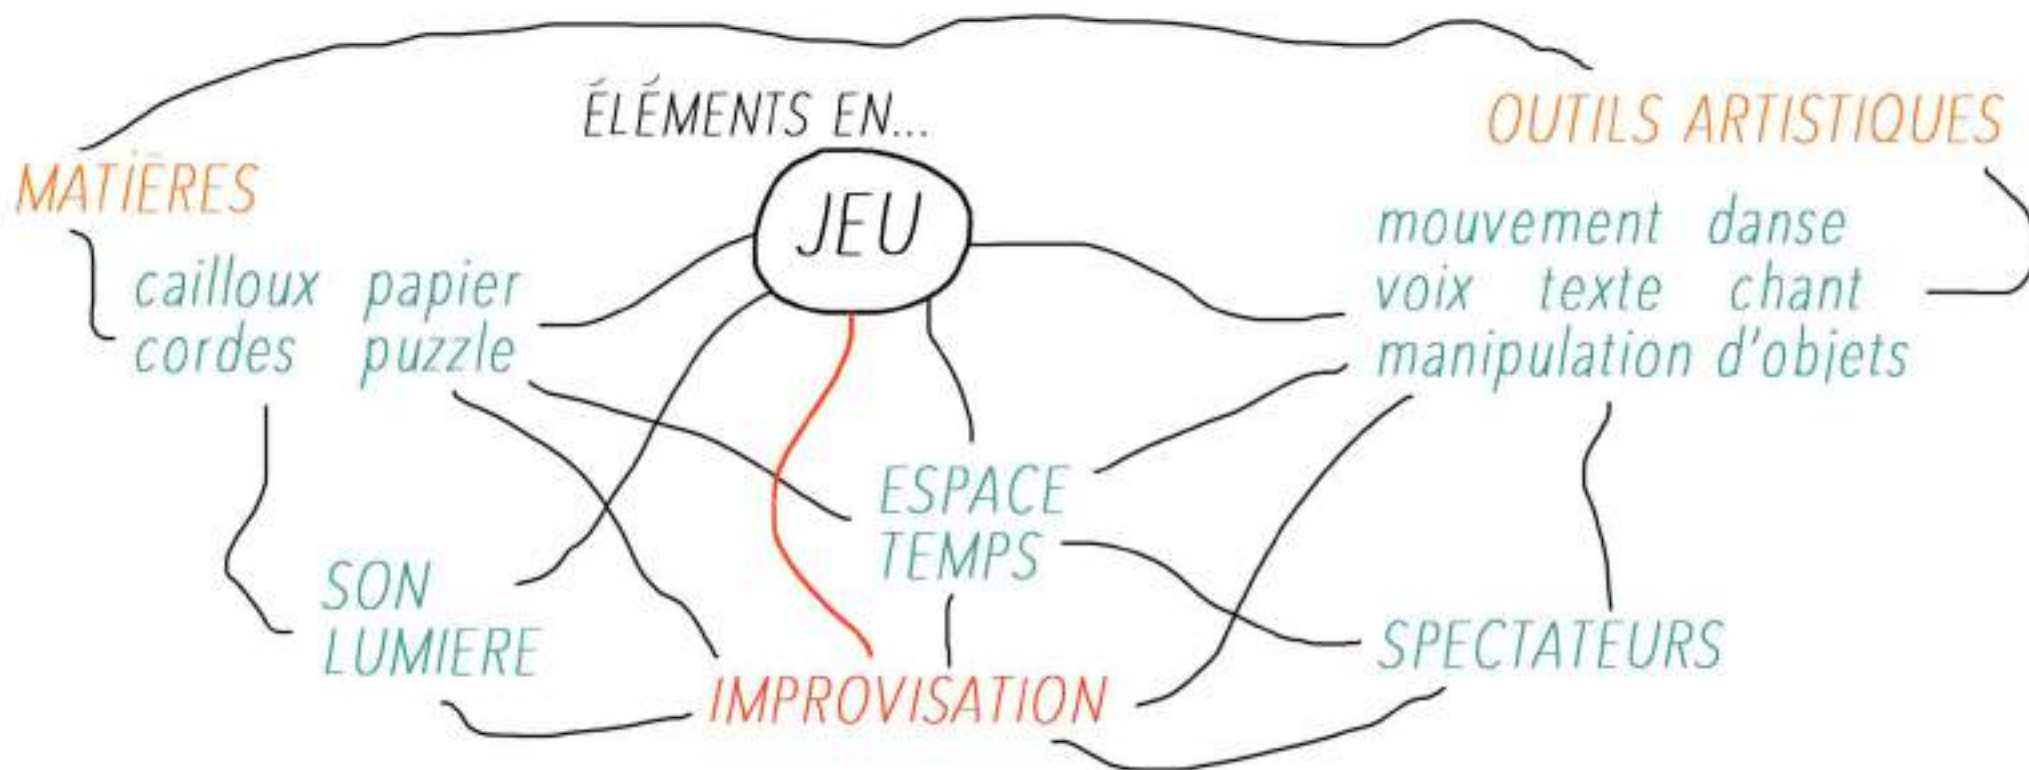 ÉLÉMENTS EN...
JEU
MATIÈRES
cailloux papier
cordes puzzle
OUTILS ARTISTIQUES
mouvement danse
voix texte chant
manipulation d'objets
ESPACE
TEMPS
SON
LUMIERE
IMPROVISATION
SPECTATEURS